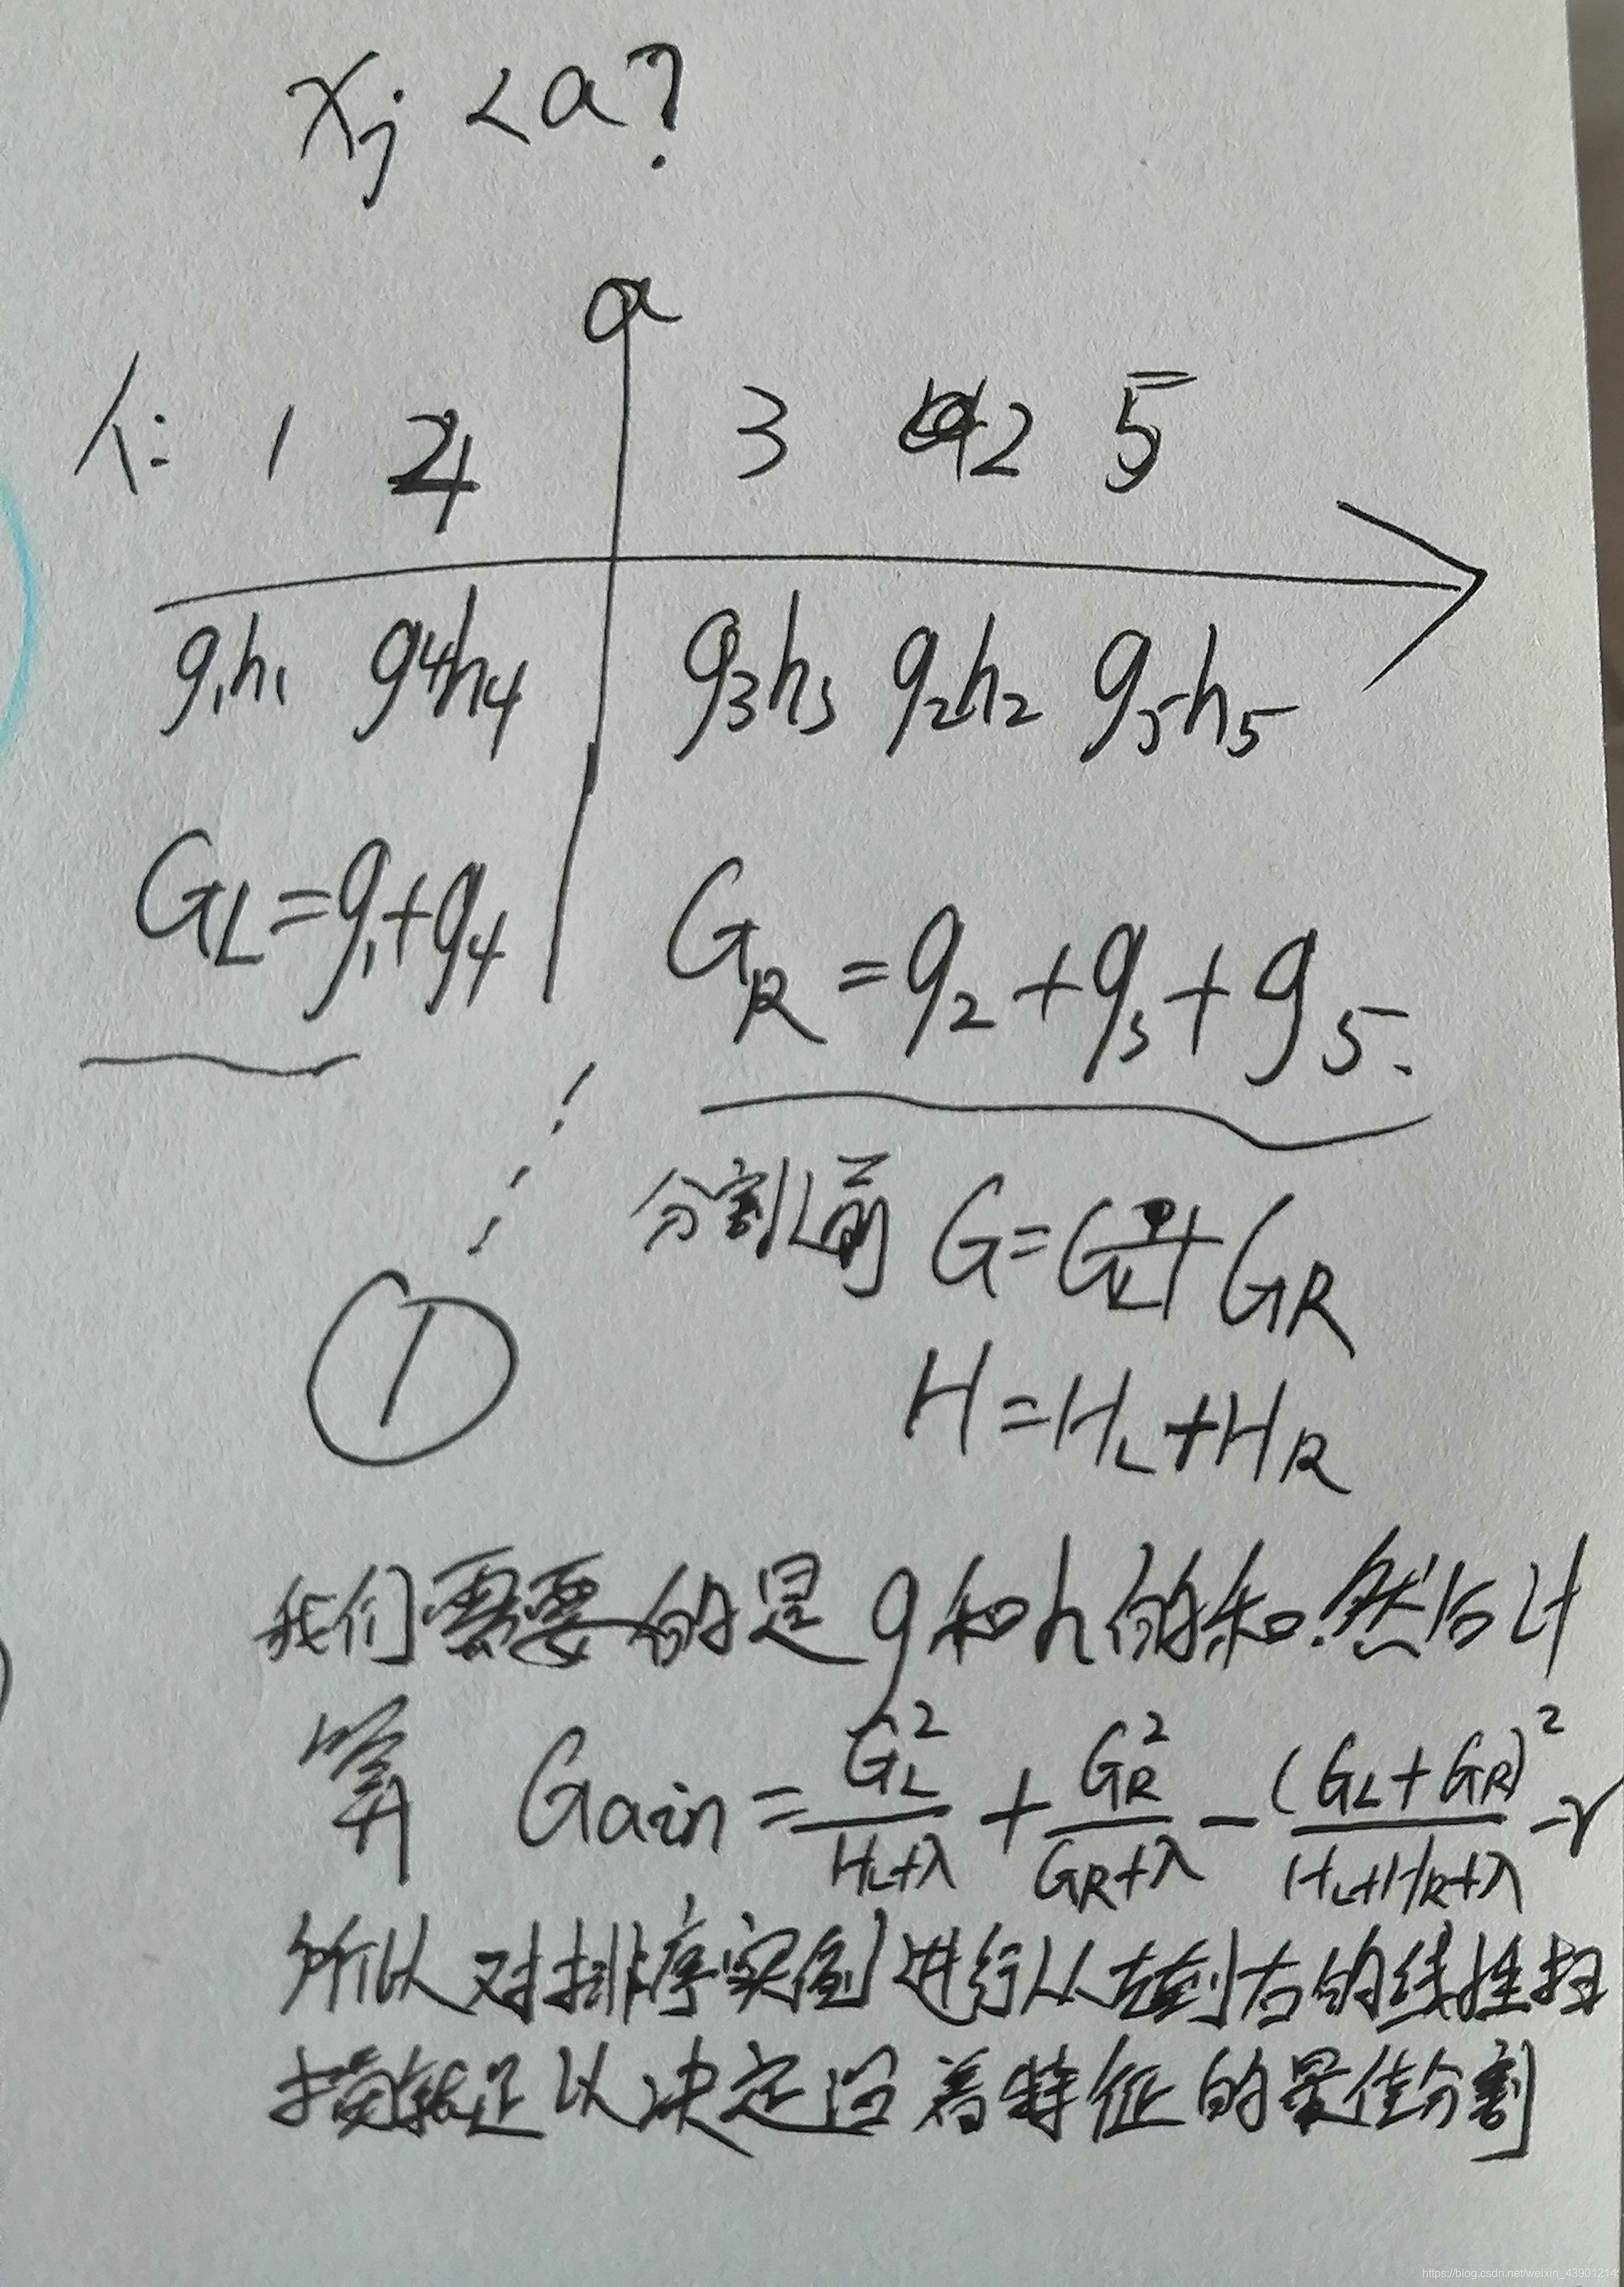 xj < a?
a
人: 1 4 3 2 5
g1h1 g4h4 g3h3 g2h2 g5h5
GL=g1+g4 GR=g2+g3+g5.
分割前 G=GL+GR
①
H=HL+HR
我们需要的是g和h的和.然后计
算 Gain=GL²/(HL+λ) + GR²/(GR+λ) - (GL+GR)²/(HL+HR+λ) - γ
所以对排序实例进行从左到右的线性扫
描就足以决定沿着特征的最佳分割
https://blog.csdn.net/weixin_43901214